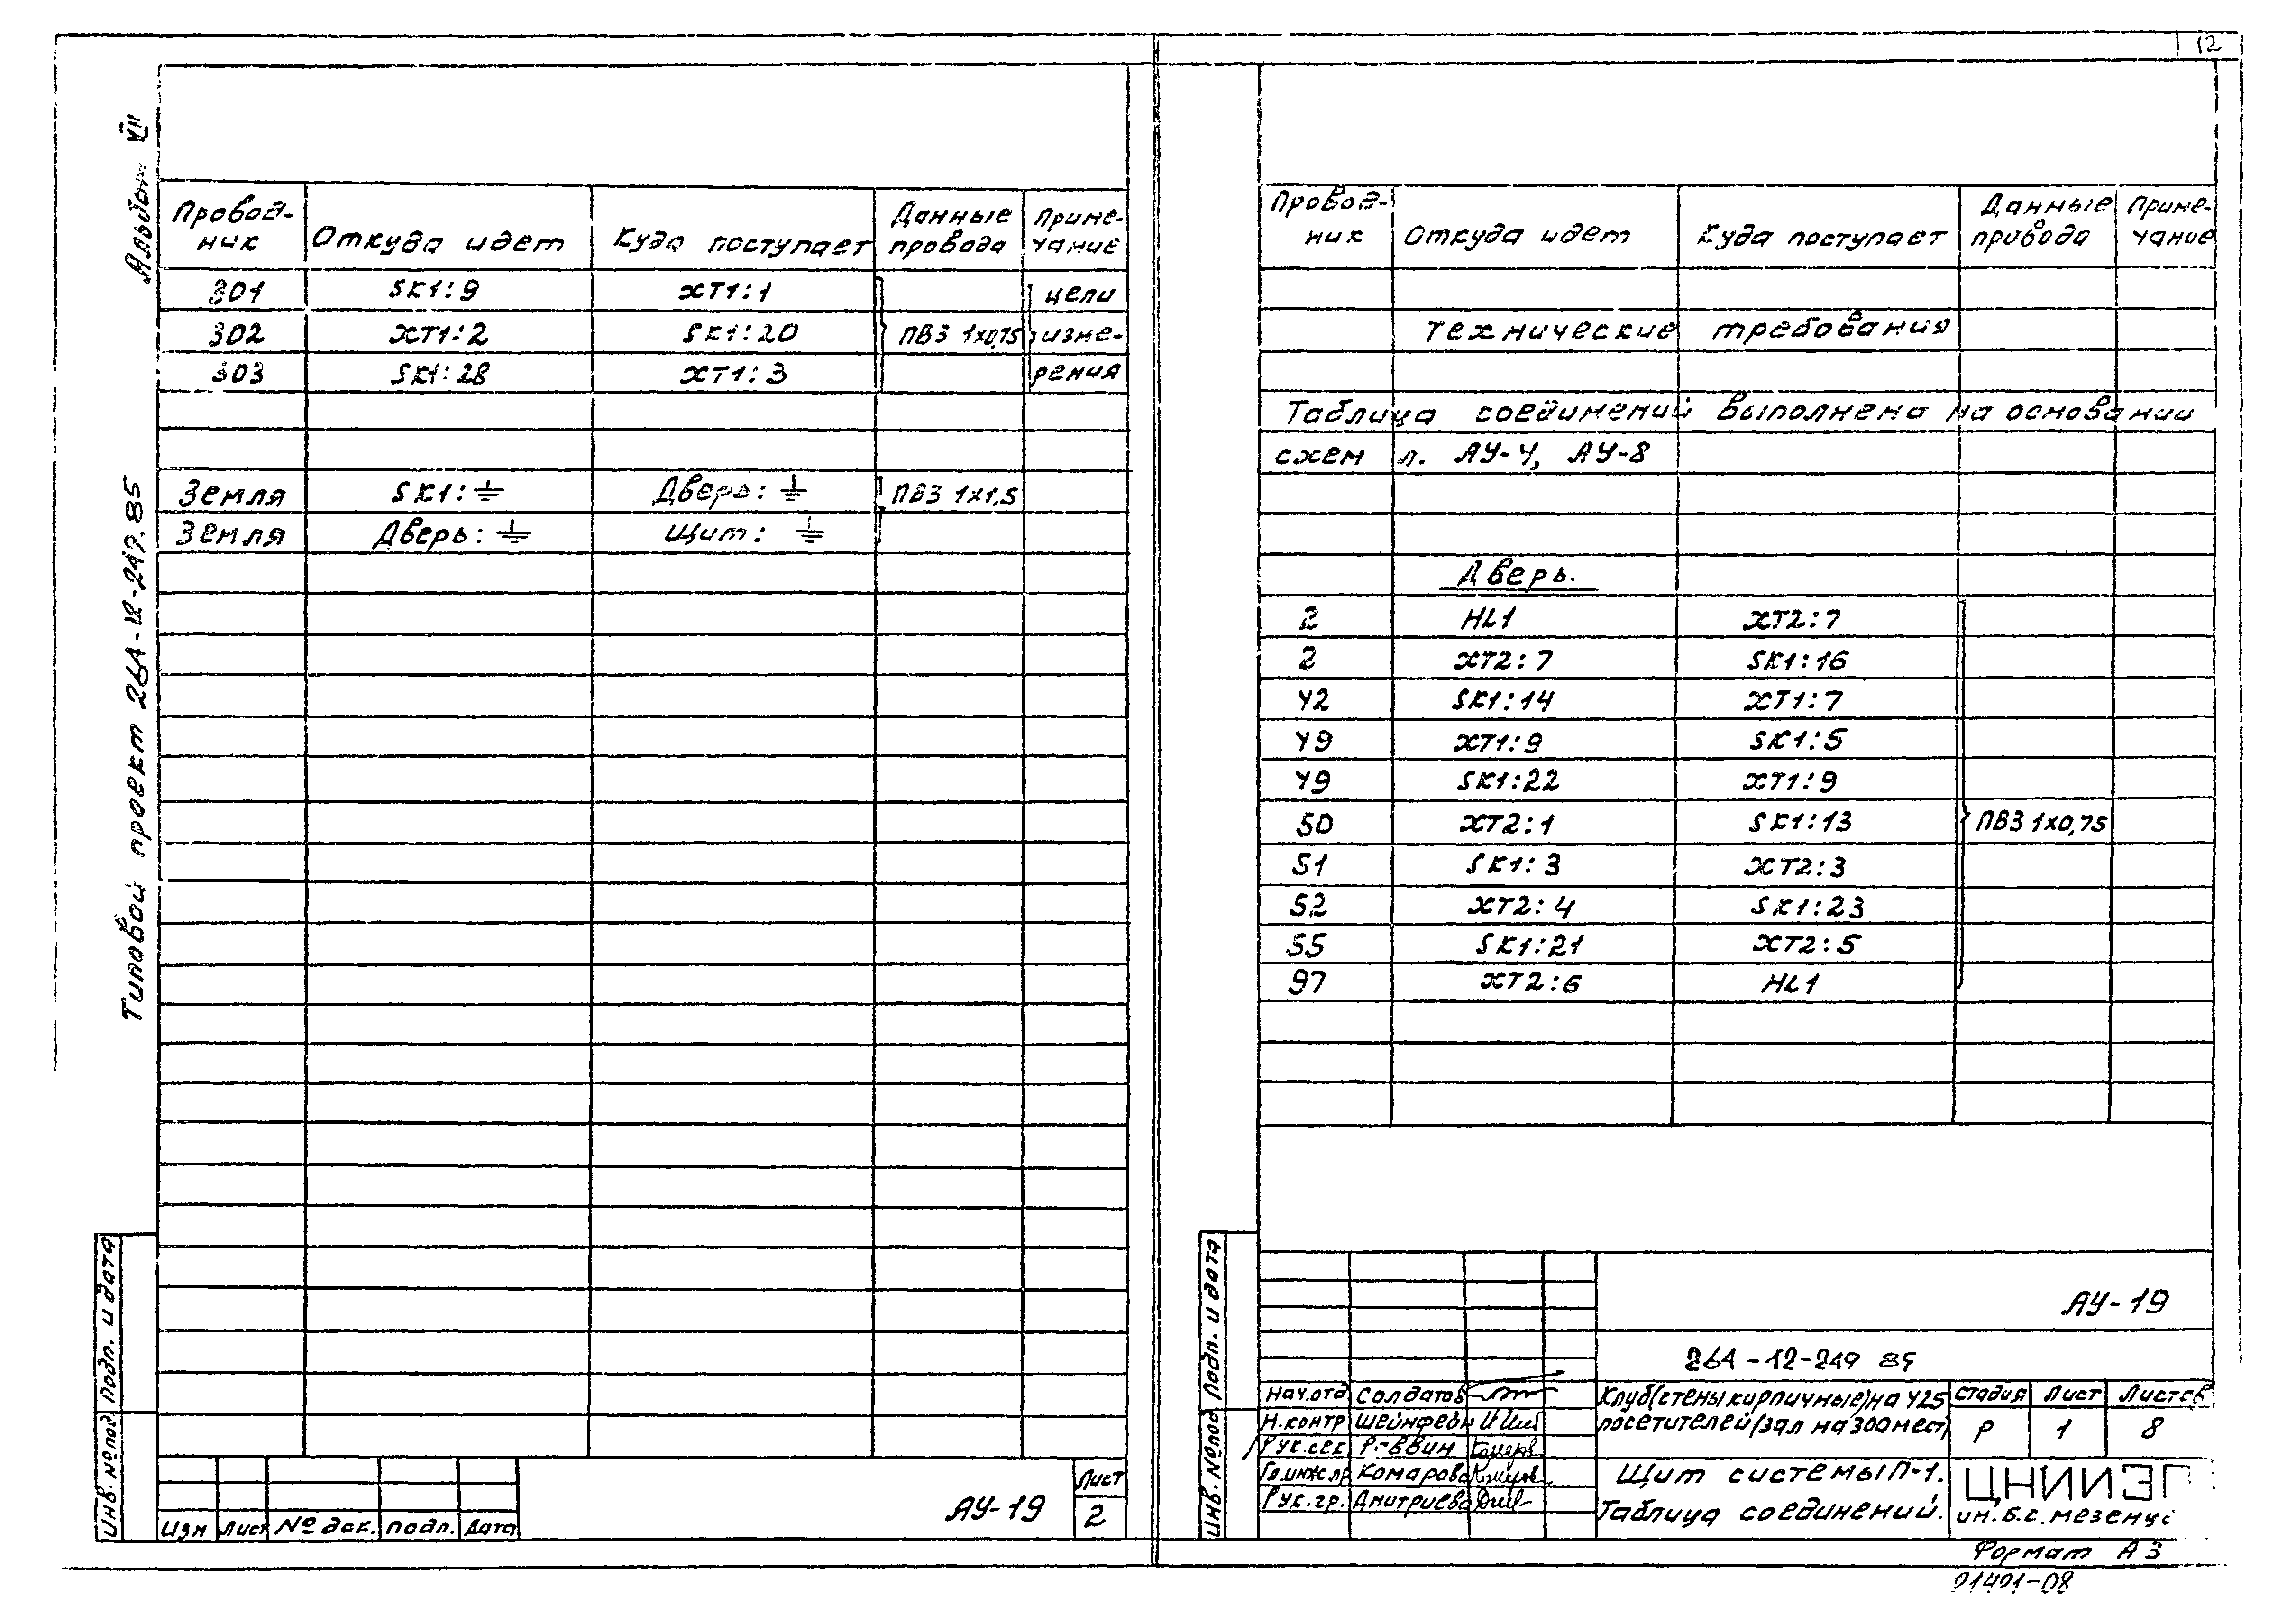 12
Альбом VII
Типовой проект 264-12-249.85
Провод-ник Откуда идет Куда поступает Данные провода Приме-чание
301 SK1:9 XT1:1 цепи
302 XT1:2 SK1:20 ПВ3 1х0,75 изме-
303 SK1:28 XT1:3 рения
Земля SK1:⏚ Дверь:⏚ ПВ3 1х1,5
Земля Дверь:⏚ Щит:⏚
Инв. № подл. Подп. и дата
Изм Лист № док. подл. Дата
АУ-19
Лист
2
Провод-ник Откуда идет Куда поступает Данные провода Приме-чание
Технические требования
Таблица соединений выполнена на основании
схем л. АУ-4, АУ-8
Дверь.
2 HL1 XT2:7
2 XT2:7 SK1:16
42 SK1:14 XT1:7
49 XT1:9 SK1:5
49 SK1:22 XT1:9
50 XT2:1 SK1:13 ПВ3 1х0,75
51 SK1:3 XT2:3
52 XT2:4 SK1:23
55 SK1:21 XT2:5
97 XT2:6 HL1
Инв. № подл. Подп. и дата
АУ-19
264-12-249 85
Нач.отд Солдатов
Н.контр Шейнфедн
Рук.сек Р-ввин
Гл.инж.пр Комарова
Рук.гр. Дмитриева
Клуб(стены кирпичные)на 425
посетителей/зал на 300 мест)
стадия Лист Листов
Р 1 8
Щит системы П-1.
Таблица соединений.
ЦНИИЭП
им.Б.С.Мезенце
Формат А3
21421-08